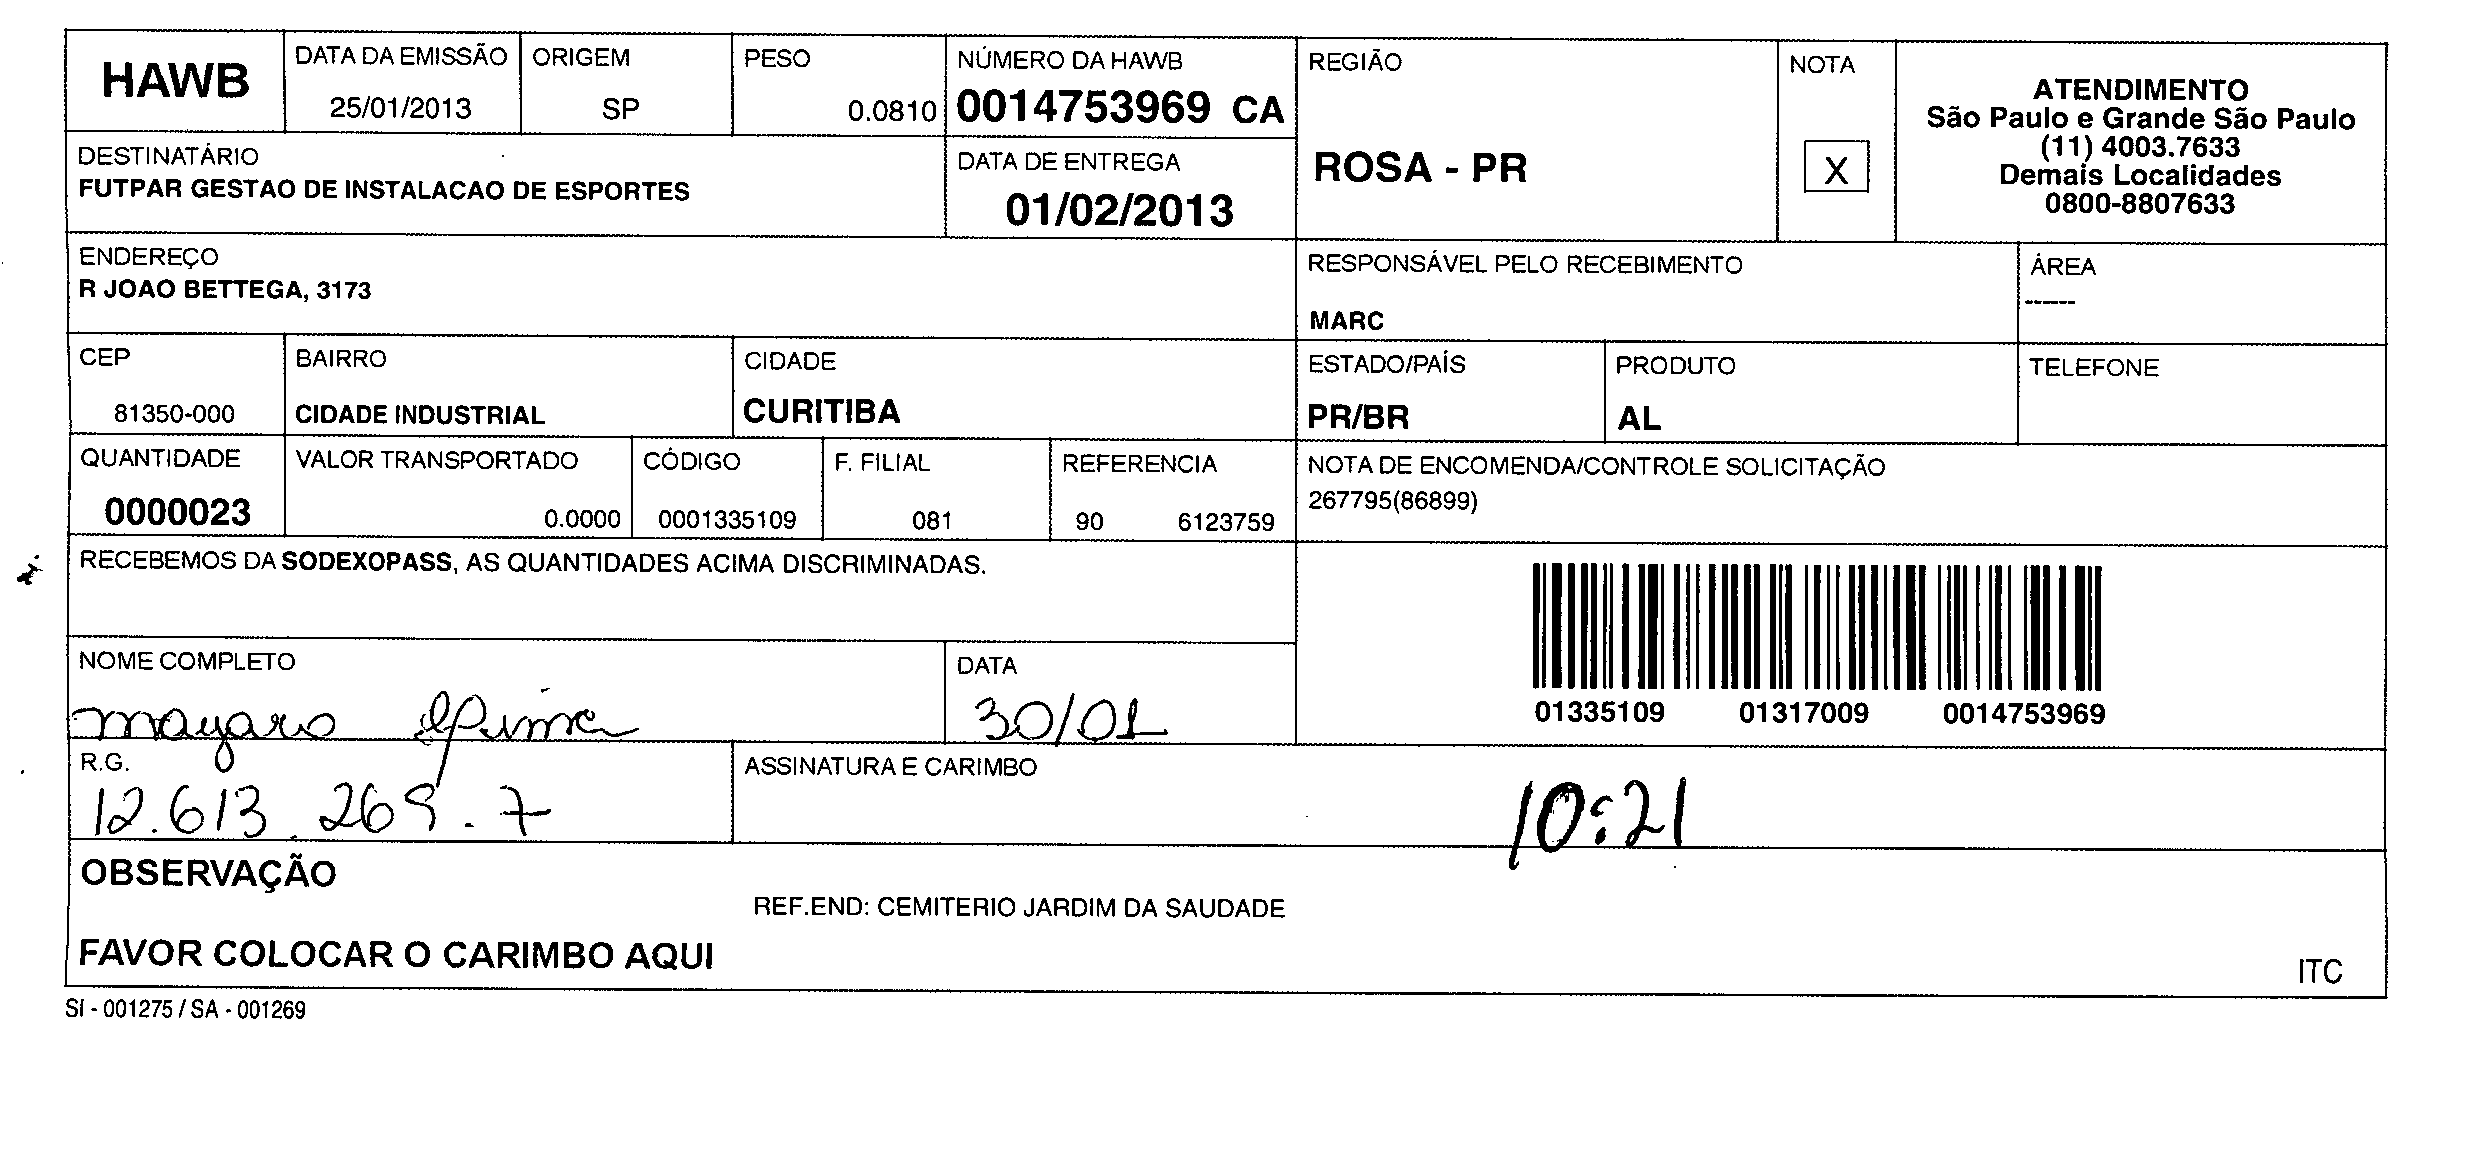 HAWB
DATA DA EMISSÃO
25/01/2013
ORIGEM
SP
PESO
0.0810
NÚMERO DA HAWB
0014753969 CA
REGIÃO
ROSA - PR
NOTA
X
ATENDIMENTO
São Paulo e Grande São Paulo
(11) 4003.7633
Demais Localidades
0800-8807633
DESTINATÁRIO
FUTPAR GESTAO DE INSTALACAO DE ESPORTES
DATA DE ENTREGA
01/02/2013
ENDEREÇO
R JOAO BETTEGA, 3173
RESPONSÁVEL PELO RECEBIMENTO
MARC
ÁREA
------
CEP
81350-000
BAIRRO
CIDADE INDUSTRIAL
CIDADE
CURITIBA
ESTADO/PAÍS
PR/BR
PRODUTO
AL
TELEFONE
QUANTIDADE
0000023
VALOR TRANSPORTADO
0.0000
CÓDIGO
0001335109
F. FILIAL
081
REFERENCIA
90 6123759
NOTA DE ENCOMENDA/CONTROLE SOLICITAÇÃO
267795(86899)
RECEBEMOS DA SODEXOPASS, AS QUANTIDADES ACIMA DISCRIMINADAS.
01335109 01317009 0014753969
NOME COMPLETO
mayara
DATA
30/01
R.G.
12.613.269.7
ASSINATURA E CARIMBO
10:21
OBSERVAÇÃO
REF.END: CEMITERIO JARDIM DA SAUDADE
FAVOR COLOCAR O CARIMBO AQUI
ITC
SI - 001275 / SA - 001269